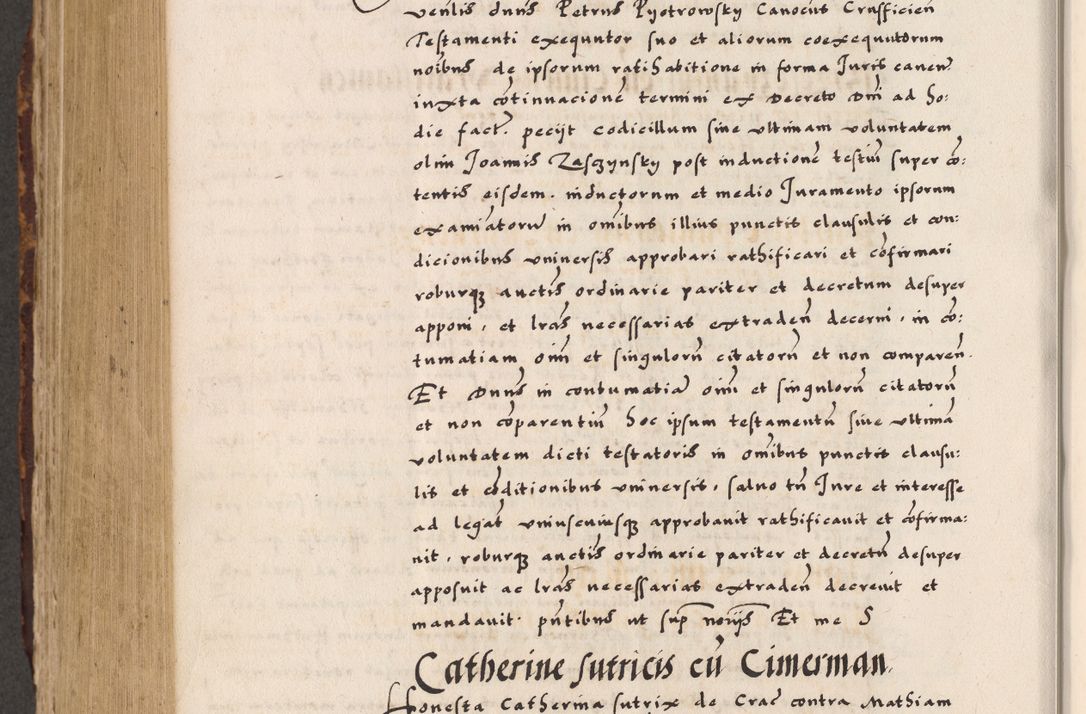 venlis dnus Petrus Pyotrowsky Canocus Crusficien
Testamenti exequutor suo et aliorum coexequutorum
noibus de ipsorum ratihabitione in forma Juris caven
iuxta cōtinuacionē termini ex Decreto Dni ad ho:
die fact. peciit codicillum sive ultimam voluntatem
olim Joannis Zasczynsky post inductionē testiū super cō:
tentis eisdem. inductorum et medio Juramento ipsorum
examiatorū in omībus illius punctis clausulis et con:
dicionibus universis approbari rathificari et cōfirmari
roburqꝫ auctīs ordinarie pariter et decretum desuper
apponi, et lrās necessarias extradeñ decerni, in cō:
tumatiam oim̄ et singulorū citatorū et non compareñ.
Et Dnus in contumatiā oim̄ et singulorū citatorū
et non cōparentiū hoc ipsum testamentū sive ultimā
voluntatem dicti testatoris in omībus punctis clausu:
lis et cōditionibus universis, salvo tn̄ Jure et interesse
ad legat̄ uniuscuiusqꝫ approbavit rathificavit et cōfirma:
vit, roburqꝫ auctīs ordinarie pariter et decretū desuper
apposuit ac lrās necessarias extradeñ decrevit et
mandavit. pn̄tibus ut sup̄ noriis Et me S
Catherine sutricis cū Cimerman
Honesta Catherina sutrix de Crac̄ contra Mathiam